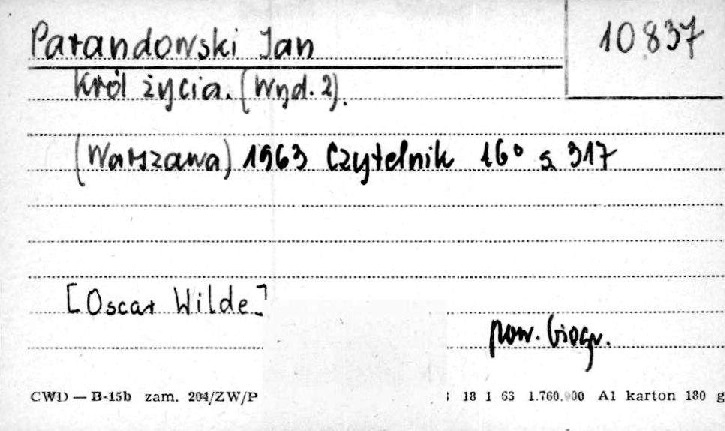 Parandowski Jan
10837
Król życia. (Wyd. 2).
(Warszawa) 1963 Czytelnik 16° s. 317
[Oscar Wilde]
pow. biogr.
CWD — B-15b zam. 204/ZW/P
18 I 63 1.760.000 A1 karton 180 g